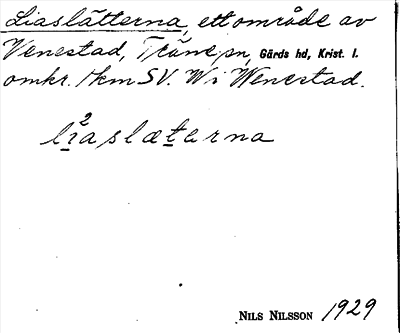 Liaslätterna, ett område av
Venestad, Träne sn, Gärds hd, Krist. l.
omkr. 1 km SV. W i Wenestad.
li²aslæterna
NILS NILSSON 1929